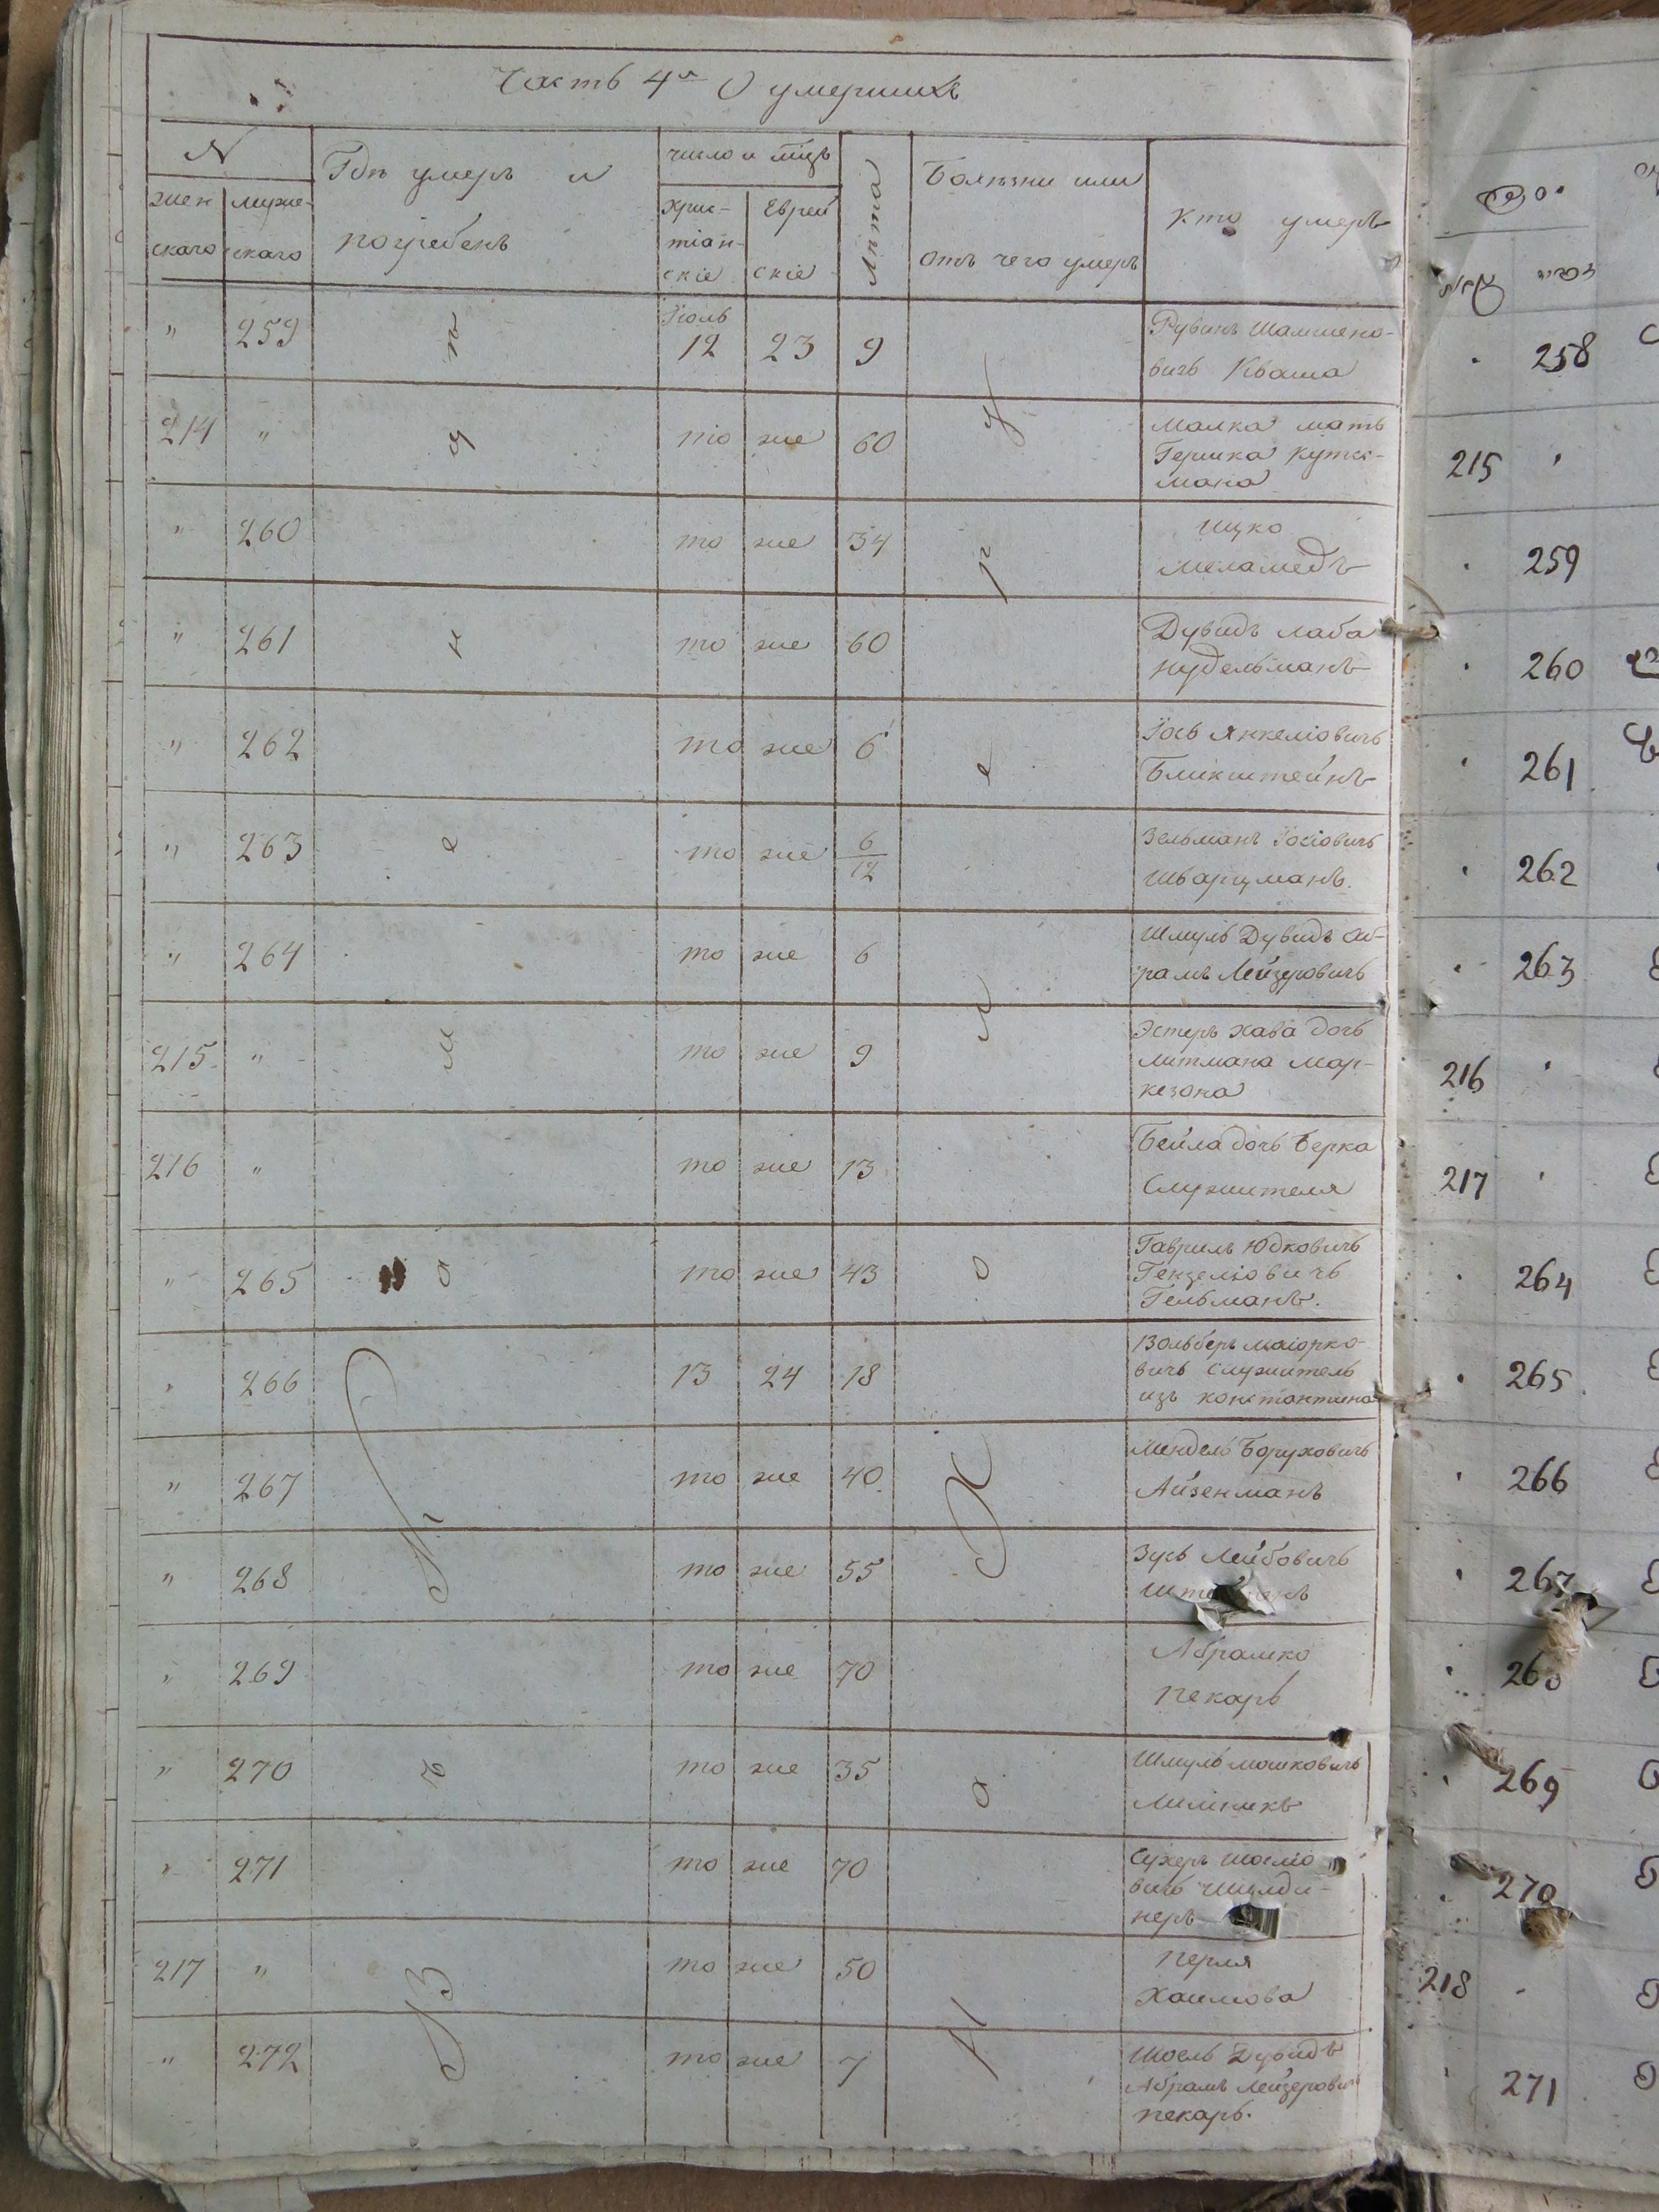 Часть 4я О умершихъ
N
женскаго
мужескаго
Гдѣ умеръ и
погребенъ
число и мѣцъ
Хрис-
тіан-
скіе
Еврей
скіе
Лѣта
Болѣзни или
отъ чего умеръ
Кто умеръ
" 259 Іюль 12 23 9 Рувинъ Шамшено-
вичъ Кваша
214 " то же 60 Малка мать
Гершка Кутес-
мана
" 260 то же 34 Ицко
Меламедъ
" 261 то же 60 Дувидъ Лаба
Нудельманъ
" 262 то же 6 Іось Янкеліовичъ
Бликштейнъ
" 263 то же 6/12 Зельманъ Іосіовичъ
Шварцманъ.
" 264 то же 6 Шмуль Дувидъ Аб-
рамъ Лейзеровичъ
215 " то же 9 Эстеръ Хава дочь
Литмана Мар-
кезона
216 " то же 13 Бейла дочь Берка
Служителя
" 265 то же 43 Гавриль Юдковичъ
Гензеліовичъ
Гельманъ.
" 266 13 24 18 Вольберъ Маіорко-
вичъ Служитель
изъ Константина
" 267 то же 40 Мендель Боруховичъ
Айзенманъ
" 268 то же 55 Зусь Лейбовичъ
" 269 то же 70 Абрамко
Пекарь
" 270 то же 35 Шмуль Мошковичъ
" 271 то же 70 Сухеръ
вичъ
неръ
217 " то же 50 Перля
Хаимова
" 272 то же 7 Шоель Дувидъ
Абрамъ Лейзеровичъ
Пекарь.
258
215
259
260
261
262
263
216
217
264
265
266
267
269
270
218
271